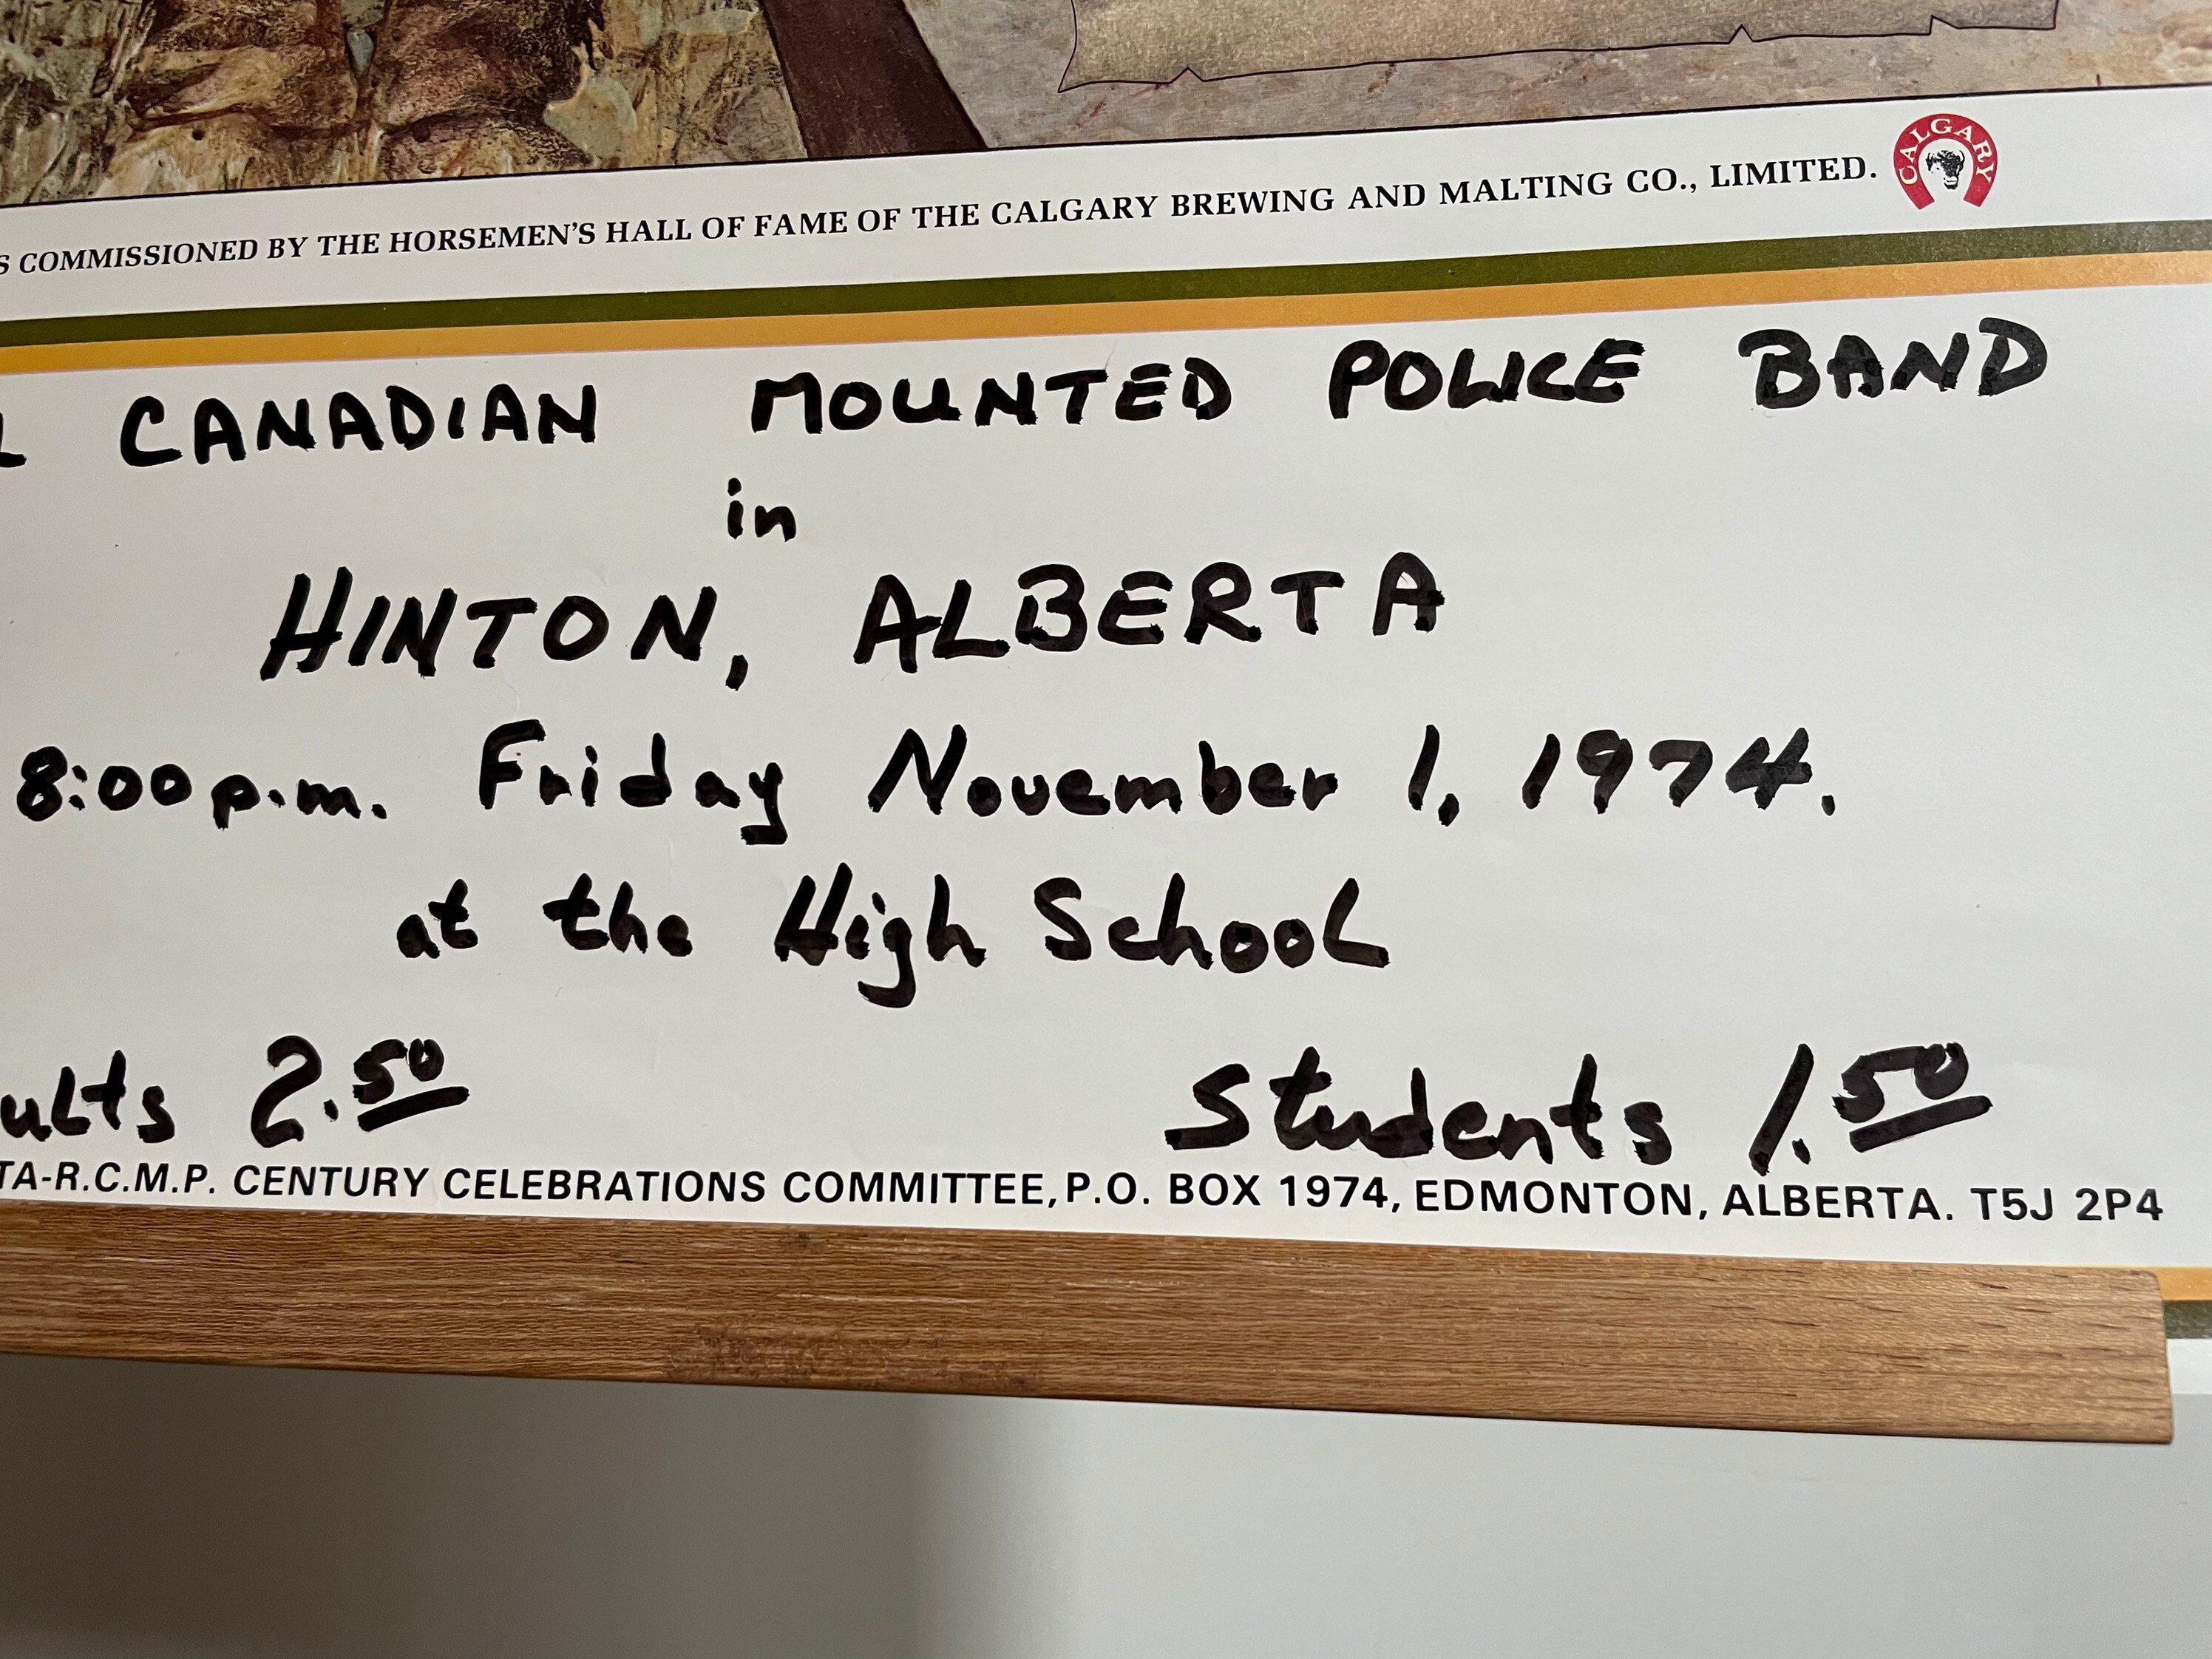 S COMMISSIONED BY THE HORSEMEN'S HALL OF FAME OF THE CALGARY BREWING AND MALTING CO., LIMITED.
CALGARY
L CANADIAN MOUNTED POLICE BAND
in
HINTON, ALBERTA
8:00 p.m. Friday November 1, 1974.
at the High School
ults 2.50 Students 1.50
TA-R.C.M.P. CENTURY CELEBRATIONS COMMITTEE, P.O. BOX 1974, EDMONTON, ALBERTA. T5J 2P4